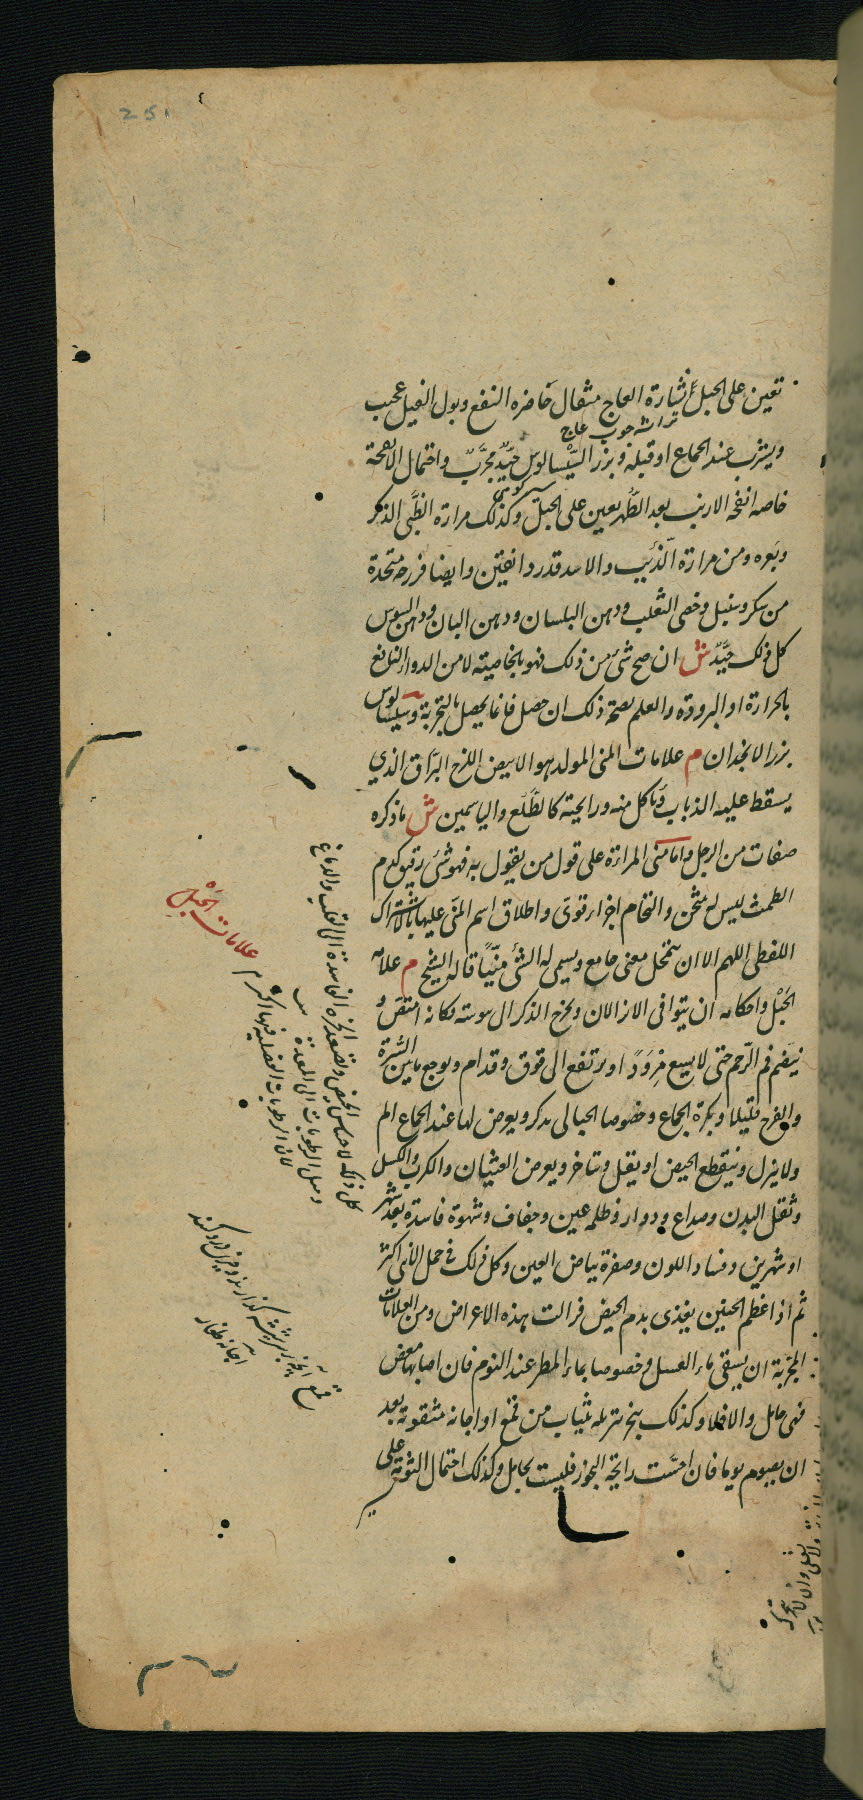 251
تعين على الحبل نشارة العاج مثقال حاضره النفع وبول الفيل عجيب
تراشه چوب عاج
ويشرب عند الجماع او قبله وبزر السيساليوس جيّد مجرّب واحتمال الانفحة
خاصه انفحه الارنب بعد الطهر يعين على الحبل وكذلك مرارة الظبى الذكر
وبعره ومن مرارة الذئب والاسد قدر دانقين وايضا فرزجه متخذة
من سكر وسنبل وخصى الثعلب ودهن البلسان ودهن البان ودهن السوس
كل ذلك جيّد ش ان صح شئ من ذلك فهو بالخاصيته لا من الدوار النافع
بالحرارة او البرودة والعلم بصحة ذلك ان حصل فانما يحصل بالتجربة وسيساليوس
بزر الانجدان م علامات المنى المولد هو الابيض اللزج البراق الذي
يسقط عليه الذباب وياكل منه ورايحته كالطلع والياسمين ش ما ذكره
صفات من الرجل واما منى المراءة على قول من يقول به فهو شئ رقيق كدم
الطمث ليس له ثخن والتحام اجزاء قوى واطلاق اسم المنى عليها باشتراك
اللفظى اللهم الا ان يتمحل معنى جامع ويسمى له الشئ منيّا قاله الشيخ م علامه
الحبل واحكامه ان يتوافى الانزالان ويخرج الذكر الى يبوسته فكانه امتص و
ينضم فم الرّحم حتى لا يسع مرودا او يرتفع الى فوق وقدام ويوجع مابين السرة
والفرج قليلا ويكره الجماع وخصوصا الحبالى بذكر ويعرض لها عند الجماع الم
ولا ينزل وينقطع الحيض او يقل ويتاخر ويعرض الغثيان والكرب والكسل
وثقل البدن وصداع ودوار وظلمه عين وجفاف وشهوة فاسدة بعد شهر
او شهرين وفساد اللون وصفرة بياض العين وكل ذلك فى حمل الانثى اكثر
ثم اذا عظم الجنين يغذى بدم الحيض فزالت هذه الاعراض ومن العلامات
المجربة ان يسقى ماء العسل وخصوصا بماء المطر عند النوم فان اصابها مغص
فهى حامل والا فلا وكذلك بتبخر متزمله بثياب من قمع او اجانه مثقوبة بعد
ان يصوم يوما فان احسّت رايحة البخور فليست بحامل وكذلك احتمال الثومة على
علامات الحبل
كل ذلك لاحتباس الحيض وتصعد ابخرة الفاسدة الى القلب والدماغ
وميل الرطوبات الى المعدة
لان الرطوبات الفضليه فيها اكثر م